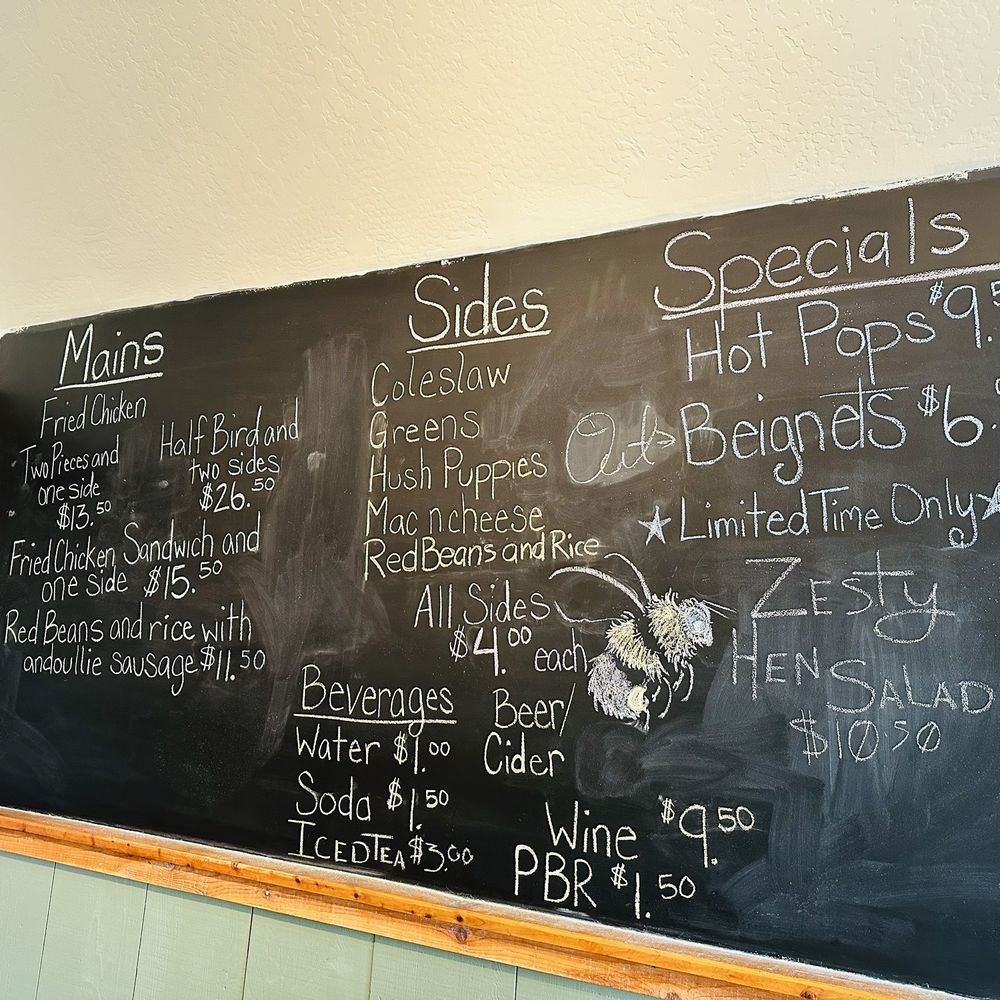 Mains
Fried Chicken
Two Pieces and
one side
$13.50
Half Bird and
two sides
$26.50
Fried Chicken Sandwich and
one side $15.50
Red Beans and rice with
andoullie sausage $11.50
Sides
Coleslaw
Greens
Hush Puppies
Mac n cheese
Red Beans and Rice
All Sides
$4.00 each
Beverages
Water $1.00
Soda $1.50
Iced Tea $3.00
Beer/
Cider
Wine $9.50
PBR $1.50
Specials
Hot Pops $9.5
Out Beignets $6.
Limited Time Only
Zesty
Hen Salad
$10.50